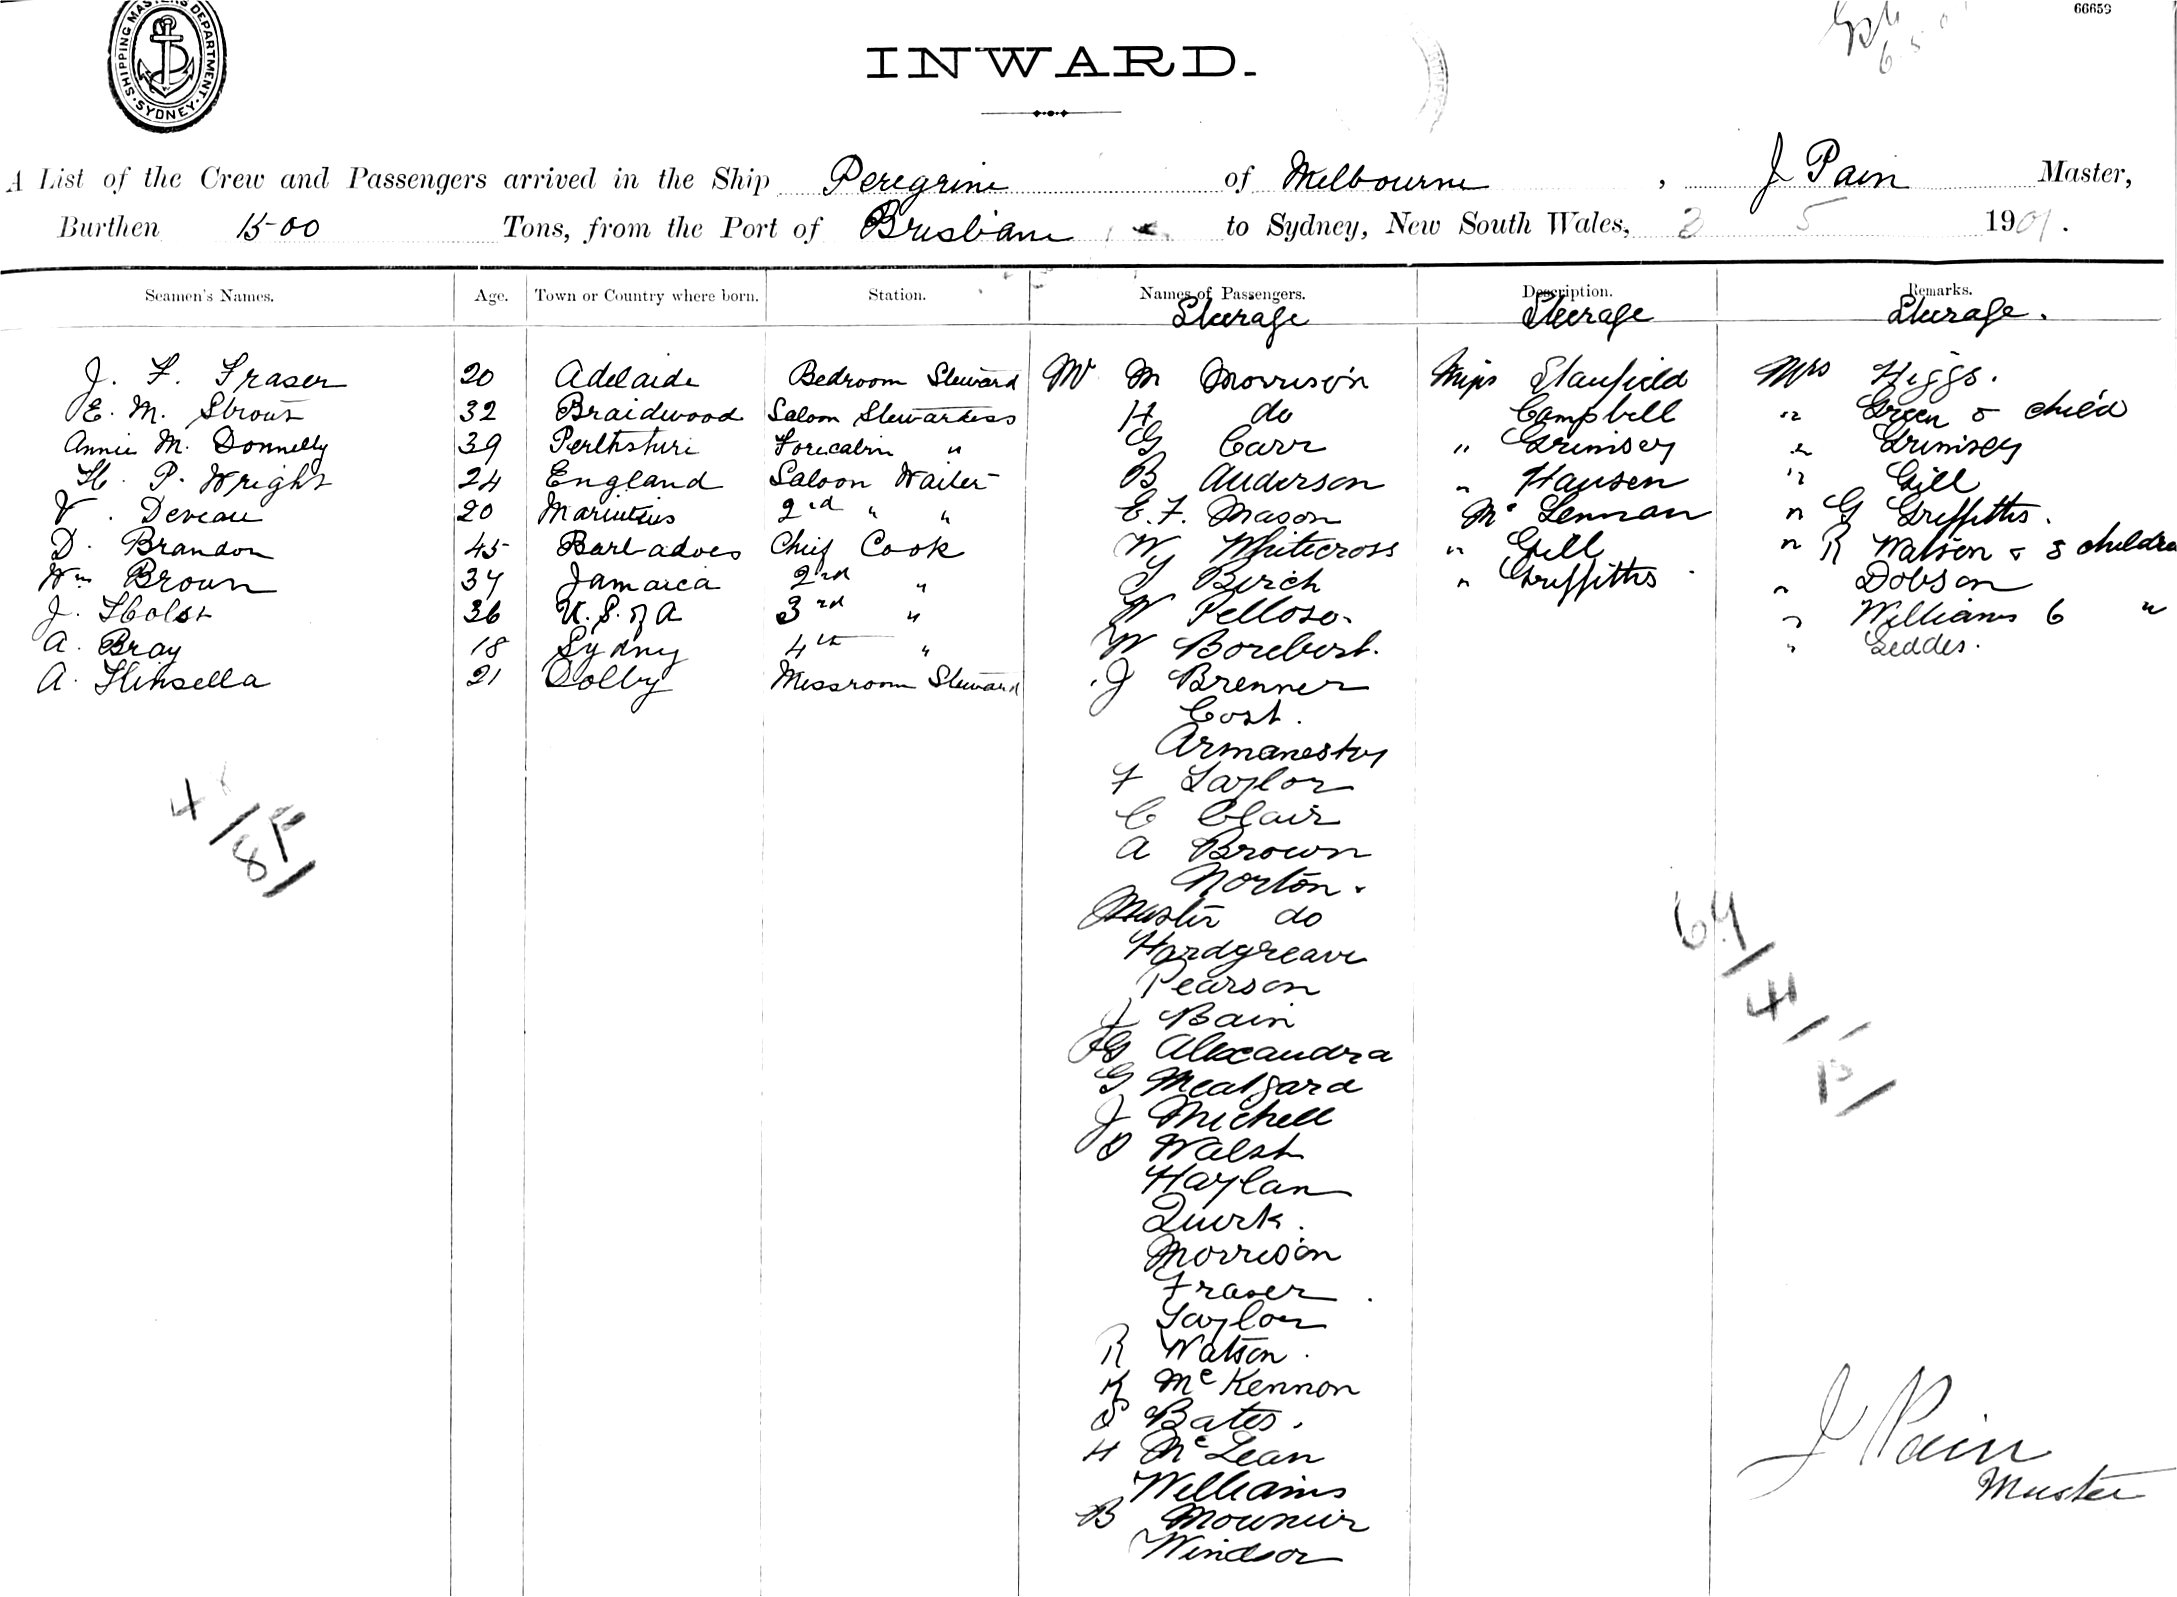 SHIPPING MASTERS DEPARTMENT. SYDNEY.
66659
INWARD.
A List of the Crew and Passengers arrived in the Ship Peregrine of Melbourne, J Pain Master,
Burthen 1500 Tons, from the Port of Brisbane to Sydney, New South Wales, 3 5 1901.
Seamen's Names. Age. Town or Country where born. Station. Names of Passengers. Description. Remarks.
Steerage Steerage Steerage.
J. F. Fraser 20 Adelaide Bedroom Steward Mr M Morrison Miss Stanfield Mrs Higgs.
E. M. Strout 32 Braidwood Saloon Stewardess H do Campbell " Green & child
Annie M. Donnelly 39 Perthshire Forecabin " G Carr " Grimsey " Grimsey
H. P. Wright 24 England Saloon Waiter B Anderson " Hansen " Gill
V. Deveau 20 Mauritius 2nd " " E. F. Mason McLennan " G Griffiths.
D. Brandon 45 Barbadoes Chief Cook W Whitecross " Gill " R Watson & 3 children
Wm Brown 34 Jamaica 2nd " J Birch " Griffiths " Dobson
J. Holst 36 U. S. of A 3rd " W Pelloso. " Williams 6 "
A. Bray 18 Sydney 4th " W Borebert. " Geddes.
A. Kinsella 21 Dolby Messroom Steward J Brenner
Cost.
Armanestry
F Taylor
C Clair
A Brown
Norton.
Master do
Hardgreave
Pearson
J Bain
G Alexandra
G Meatgard
J Michell
D Walsh
Haylan
Quirk.
Morrison
Fraser
Taylor
R Watson.
K McKennon
S Bates.
H McLean
Williams
B Mounier
Windsor
4/
8/
64/
41/
J Pain
Master